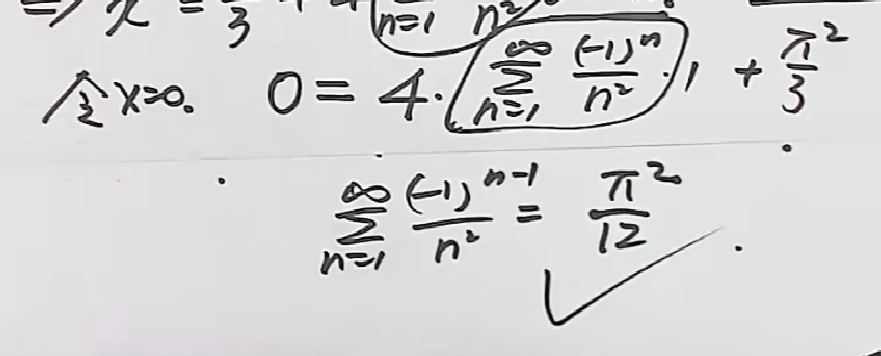 n=1 n²
令x=0. 0 = 4·(∑_{n=1}^{∞} (-1)^n/n² ·)1 + π²/3
∑_{n=1}^{∞} (-1)^{n-1}/n² = π²/12